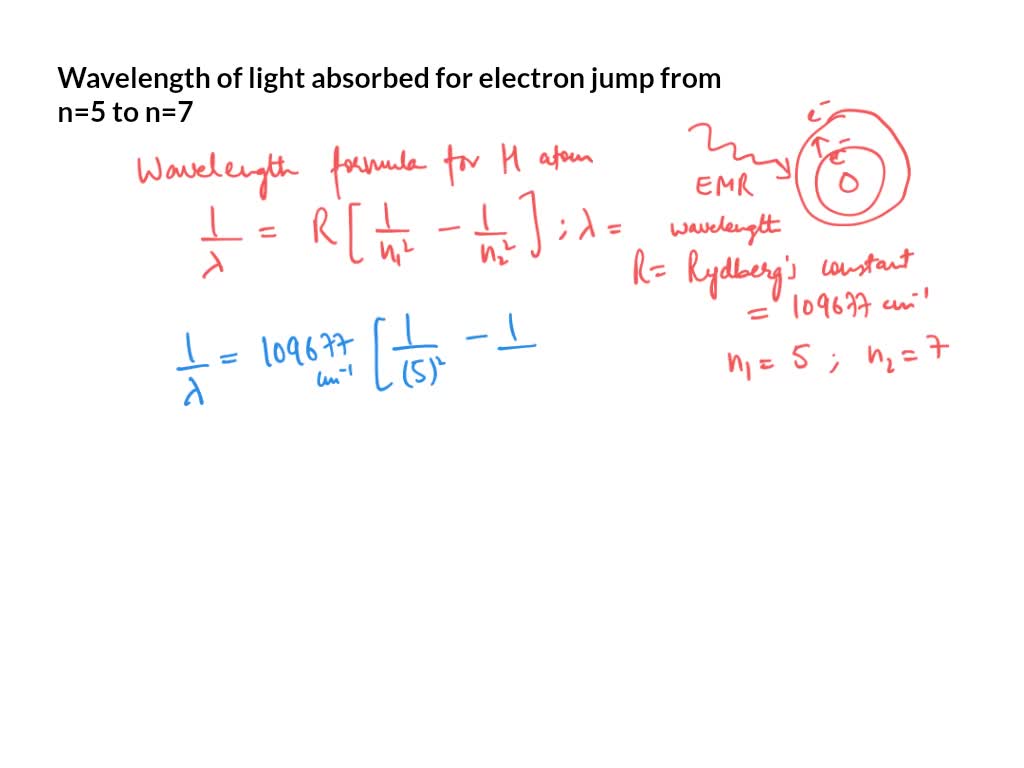 Wavelength of light absorbed for electron jump from
n=5 to n=7
e⁻
e⁻
EMR
Wavelength formula for H atom
1/λ = R [1/n₁² − 1/n₂²] ; λ = wavelength
R = Rydberg's constant
= 109677 cm⁻¹
n₁ = 5 ; n₂ = 7
1/λ = 109677 cm⁻¹ [1/(5)² − 1/